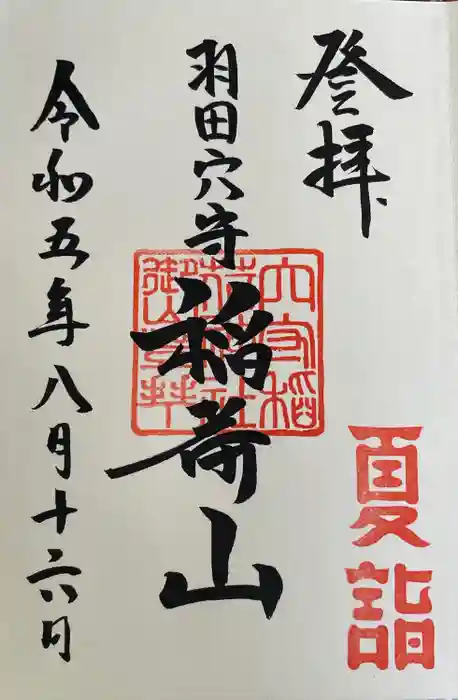 登拝
夏詣
羽田穴守
稲荷山
令和五年八月十六日